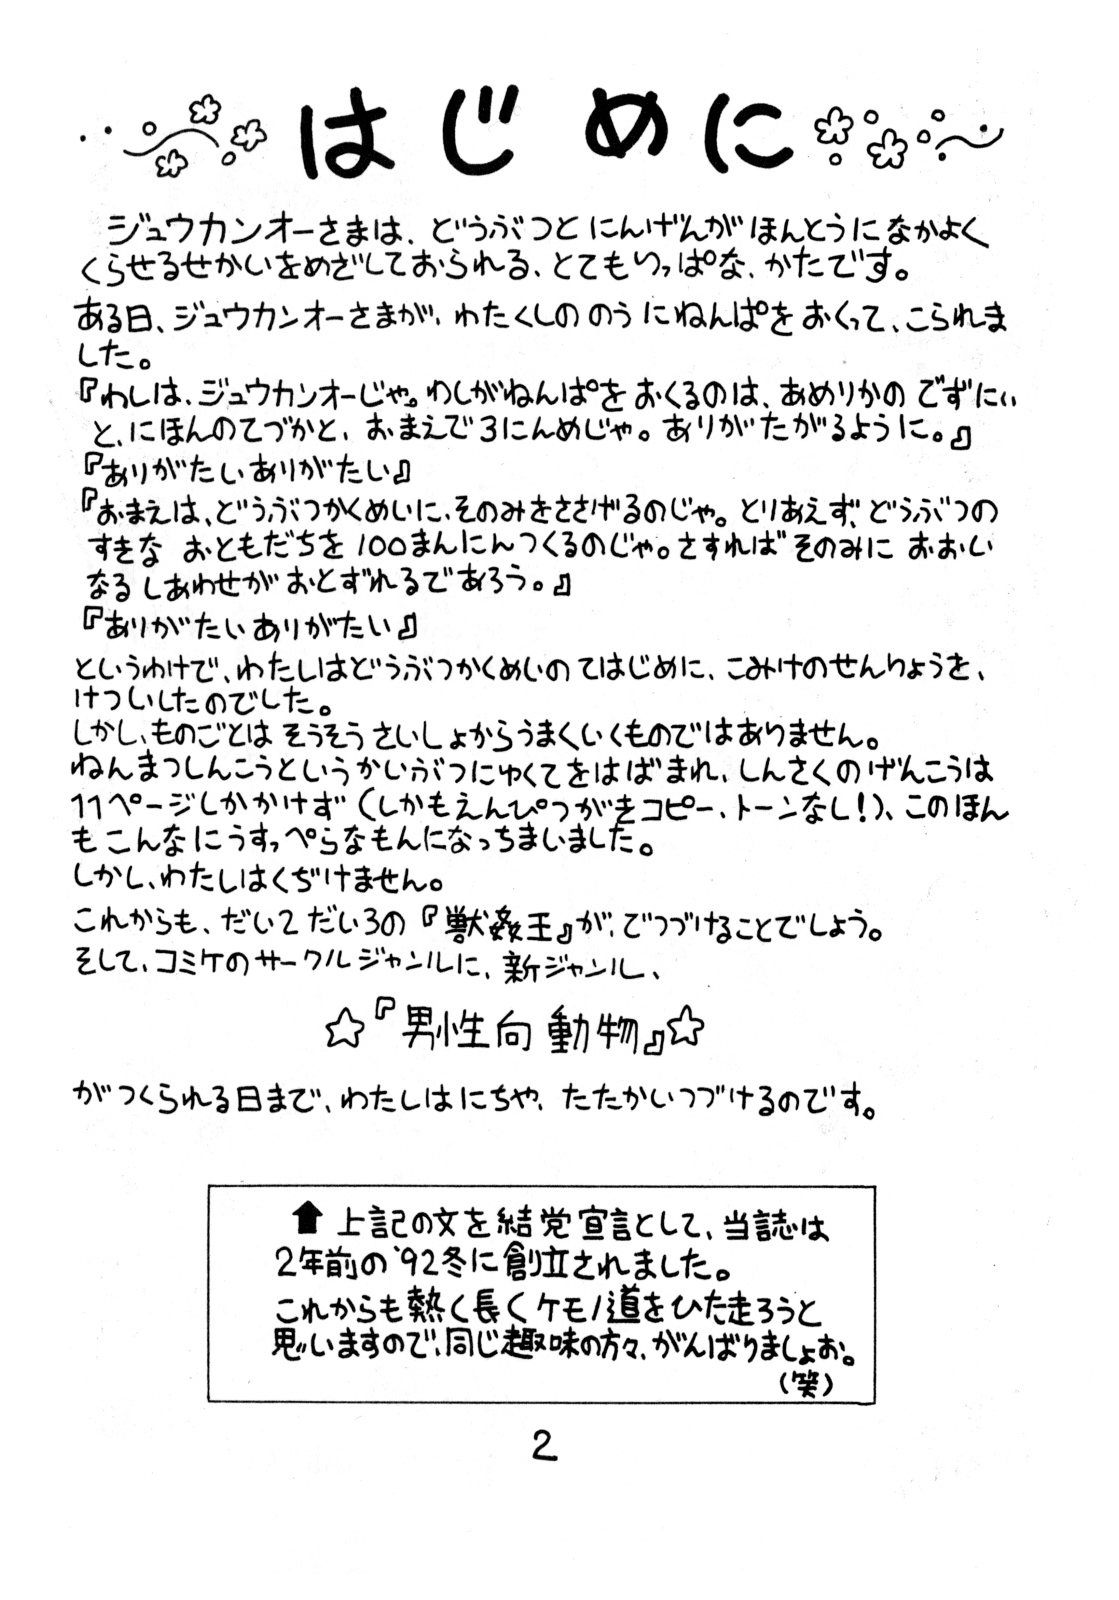 はじめに
ジュウカンオーさまは、どうぶつとにんげんがほんとうになかよく
くらせるせかいをめざしておられる、とてもいっぱな、かたです。
ある日、ジュウカンオーさまが、わたくしののうにねんぱをおくって、こられま
した。
『わしは、ジュウカンオーじゃ。わしがねんぱをおくるのは、あめりかのでずにぃ
と、にほんのてづかと、おまえで3にんめじゃ。ありがたがるように。』
『ありがたいありがたい』
『おまえは、どうぶつかくめいに、そのみをささげるのじゃ。とりあえず、どうぶつの
すきな おともだちを100まんにんつくるのじゃ。さすればそのみに おおい
なるしあわせが おとずれるであろう。』
『ありがたいありがたい』
というわけで、わたしはどうぶつかくめいのてはじめに、こみけのせんりょうを、
けついしたのでした。
しかし、ものごとはそうそうさいしょからうまくいくものではありません。
ねんまつしんこうというかいぶつにゆくてをはばまれ、しんさくのげんこうは
11ページしかかけず(しかもえんぴつがきコピー、トーンなし!)、このほん
もこんなにうすっぺらなもんになっちまいました。
しかし、わたしはくぢけません。
これからも、だい2だい3の『獣姦王』が、でつづけることでしょう。
そして、コミケのサークルジャンルに、新ジャンル、
☆『男性向動物』☆
がつくられる日まで、わたしはにちや、たたかいつづけるのです。
⬆上記の文を結党宣言として、当誌は
2年前の'92冬に創立されました。
これからも熱く長くケモノ道をひた走ろうと
思いますので、同じ趣味の方々、がんばりましょお。
(笑)
2